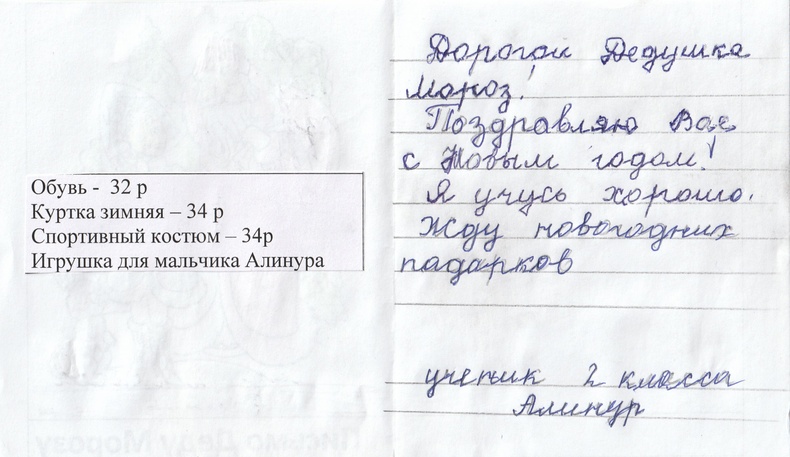 Обувь - 32 р
Куртка зимняя – 34 р
Спортивный костюм – 34р
Игрушка для мальчика Алинура
Дорогой Дедушка
Мороз!
Поздравляю Вас
с Новым годом!
Я учусь хорошо.
Жду новогодних
падарков
ученик 2 класса
Алинур
Письмо Деду Морозу